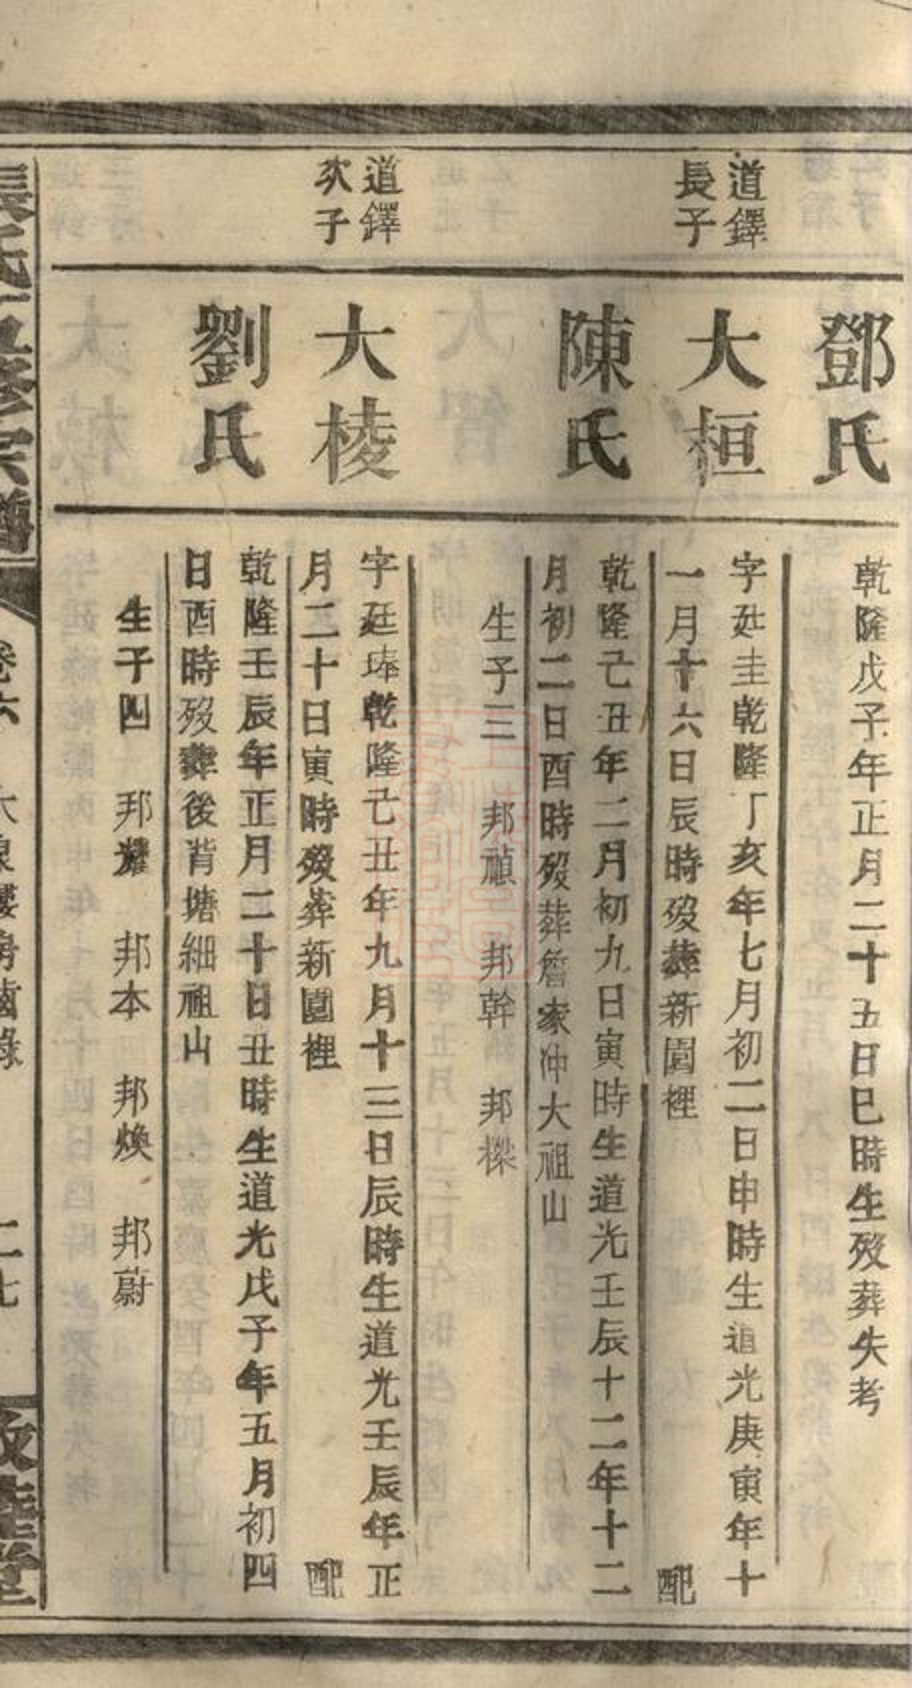 鄧氏
乾隆戊子年正月二十五日巳時生歿葬失考
道鐸
長子
大桓
字廷圭乾隆丁亥年七月初二日申時生道光庚寅年十
一月十六日辰時歿葬新園裡 配
陳氏
乾隆己丑年二月初九日寅時生道光壬辰十二年十二
月初二日酉時歿葬詹家冲大祖山
生子三 邦禎 邦幹 邦樑
道鐸
次子
大棱
字廷琫乾隆己丑年九月十三日辰時生道光壬辰年正
月二十日寅時歿葬新園裡 配
劉氏
乾隆壬辰年正月二十日丑時生道光戊子年五月初四
日酉時歿葬後背塘細祖山
生子四 邦耀 邦本 邦煥 邦蔚
張氏五修宗譜
卷六
二七
敦睦堂